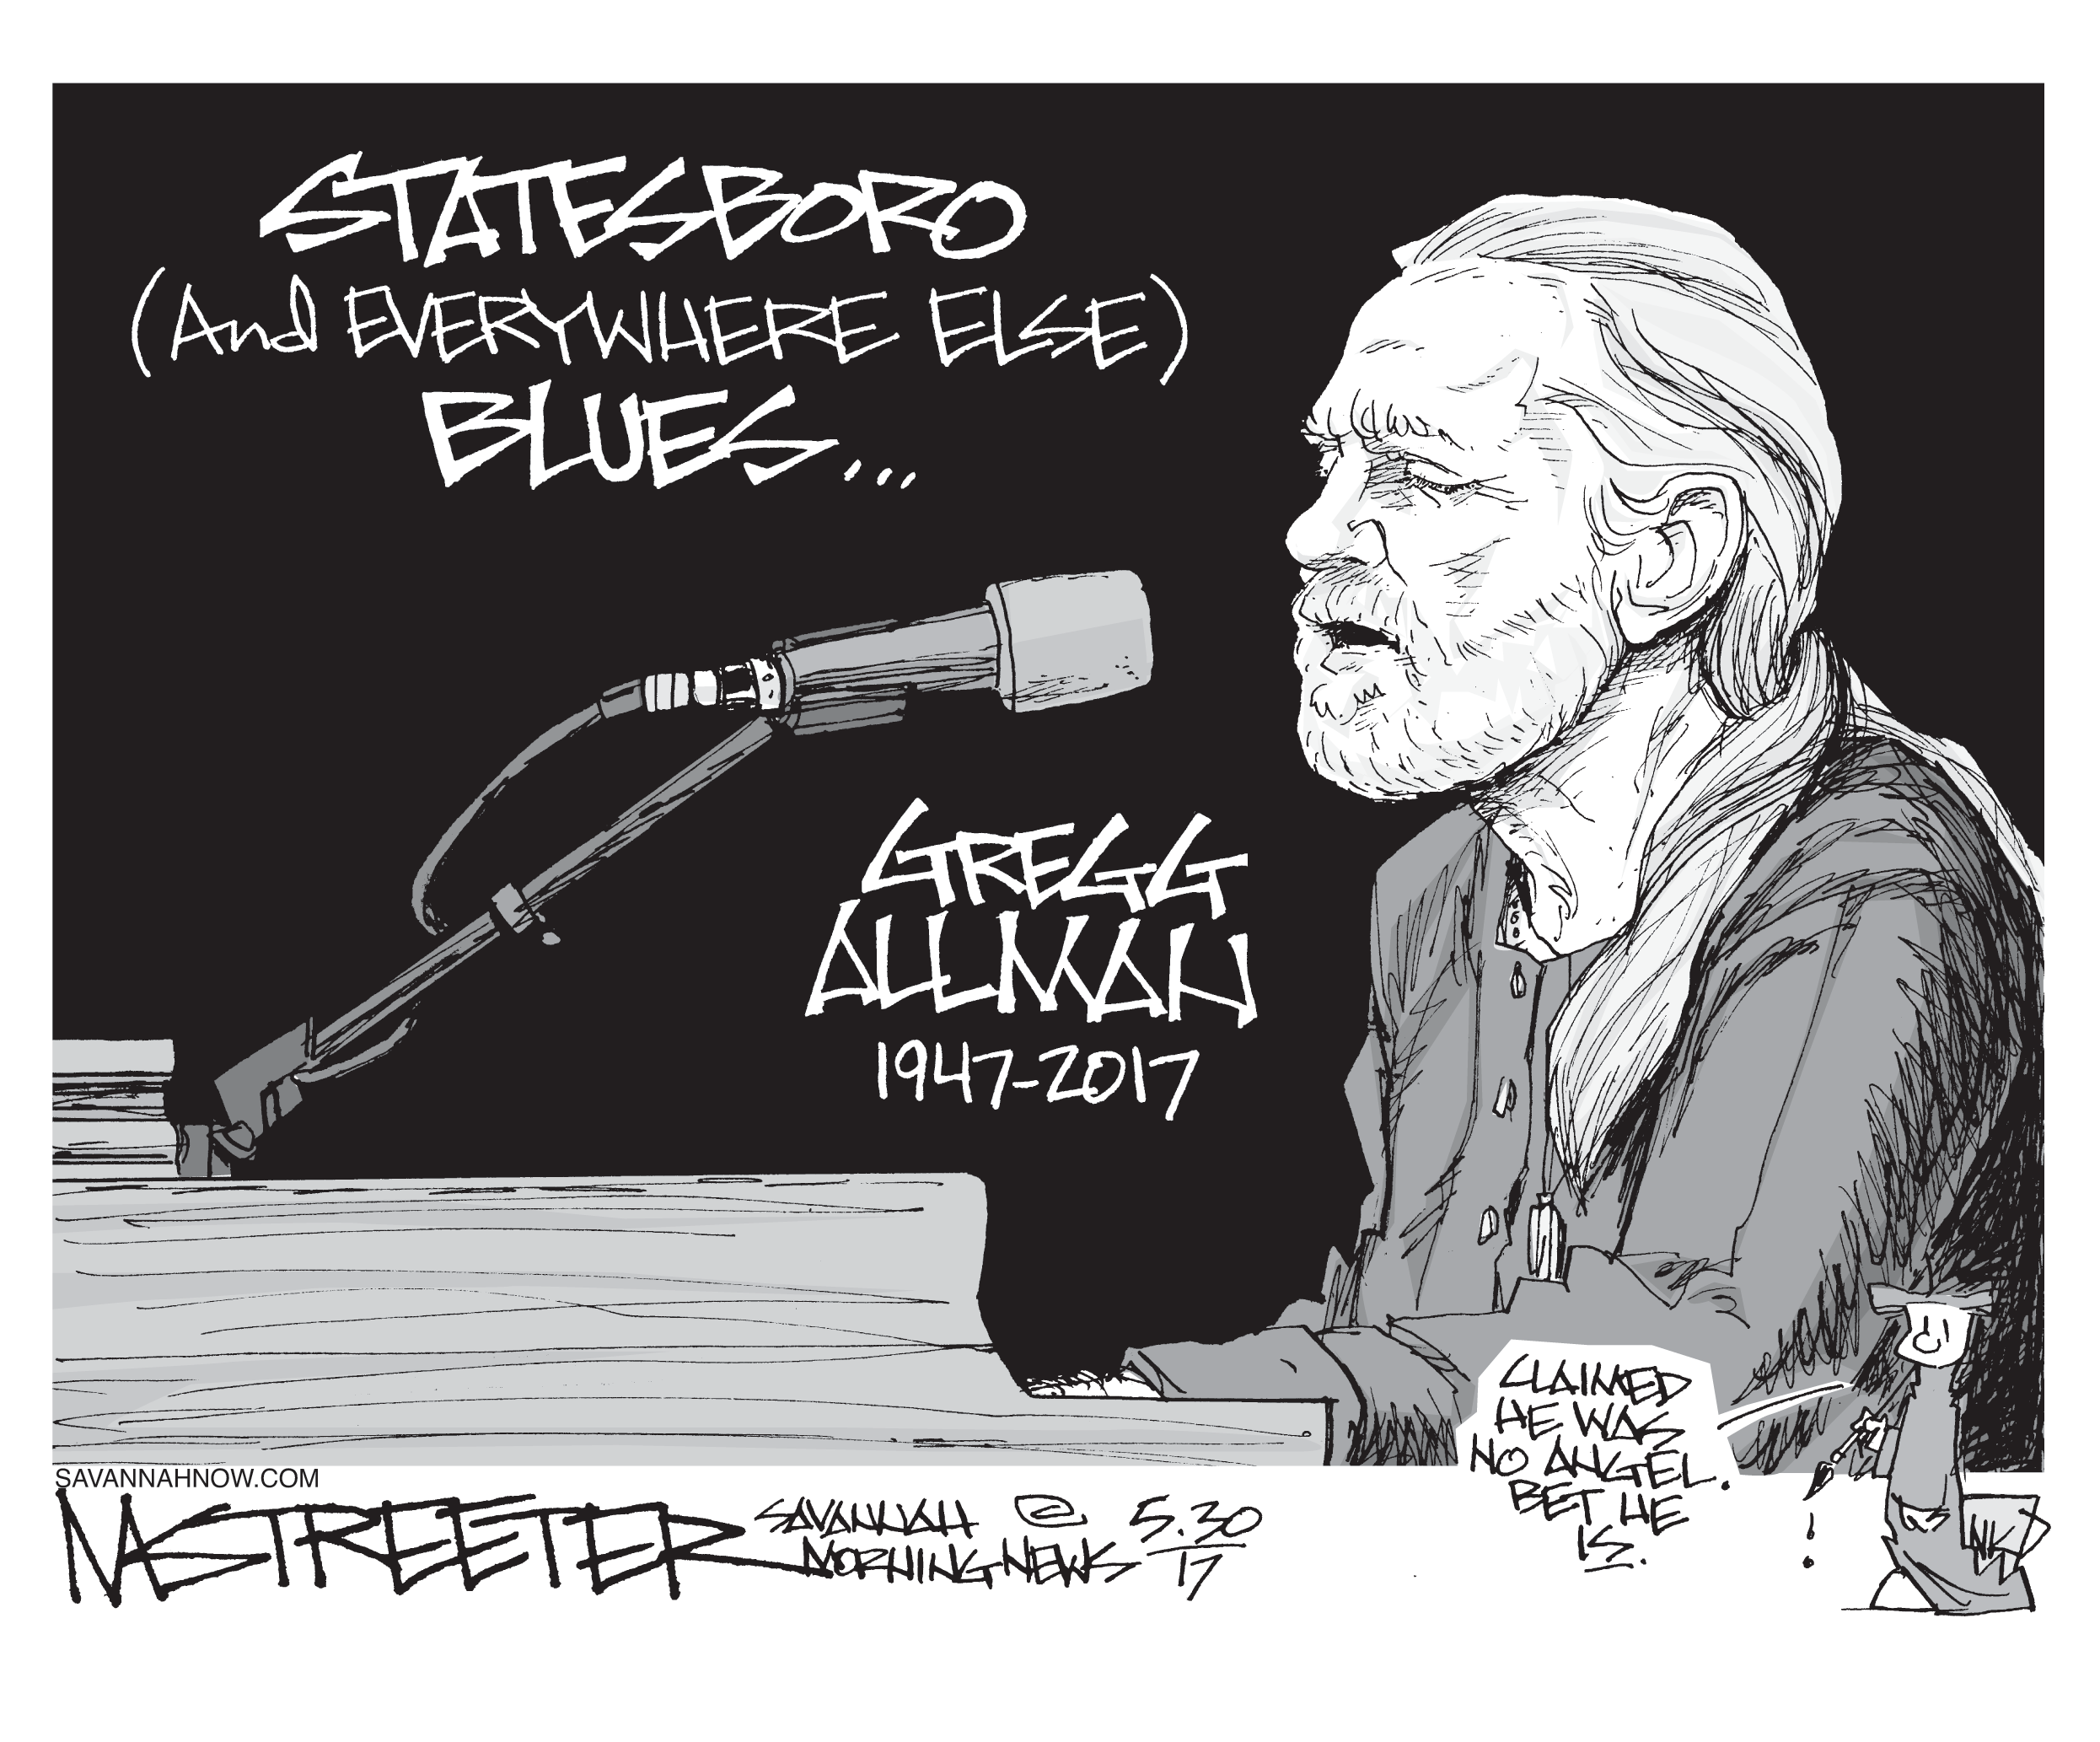 STATESBORO
(And EVERYWHERE ELSE)
BLUES...
GREGG
ALLMAN
1947-2017
CLAIMED
HE WAS
NO ANGEL.
BET HE
IS.
SAVANNAHNOW.COM
STREETER
SAVANNAH
MORNING NEWS
©
5.30
17